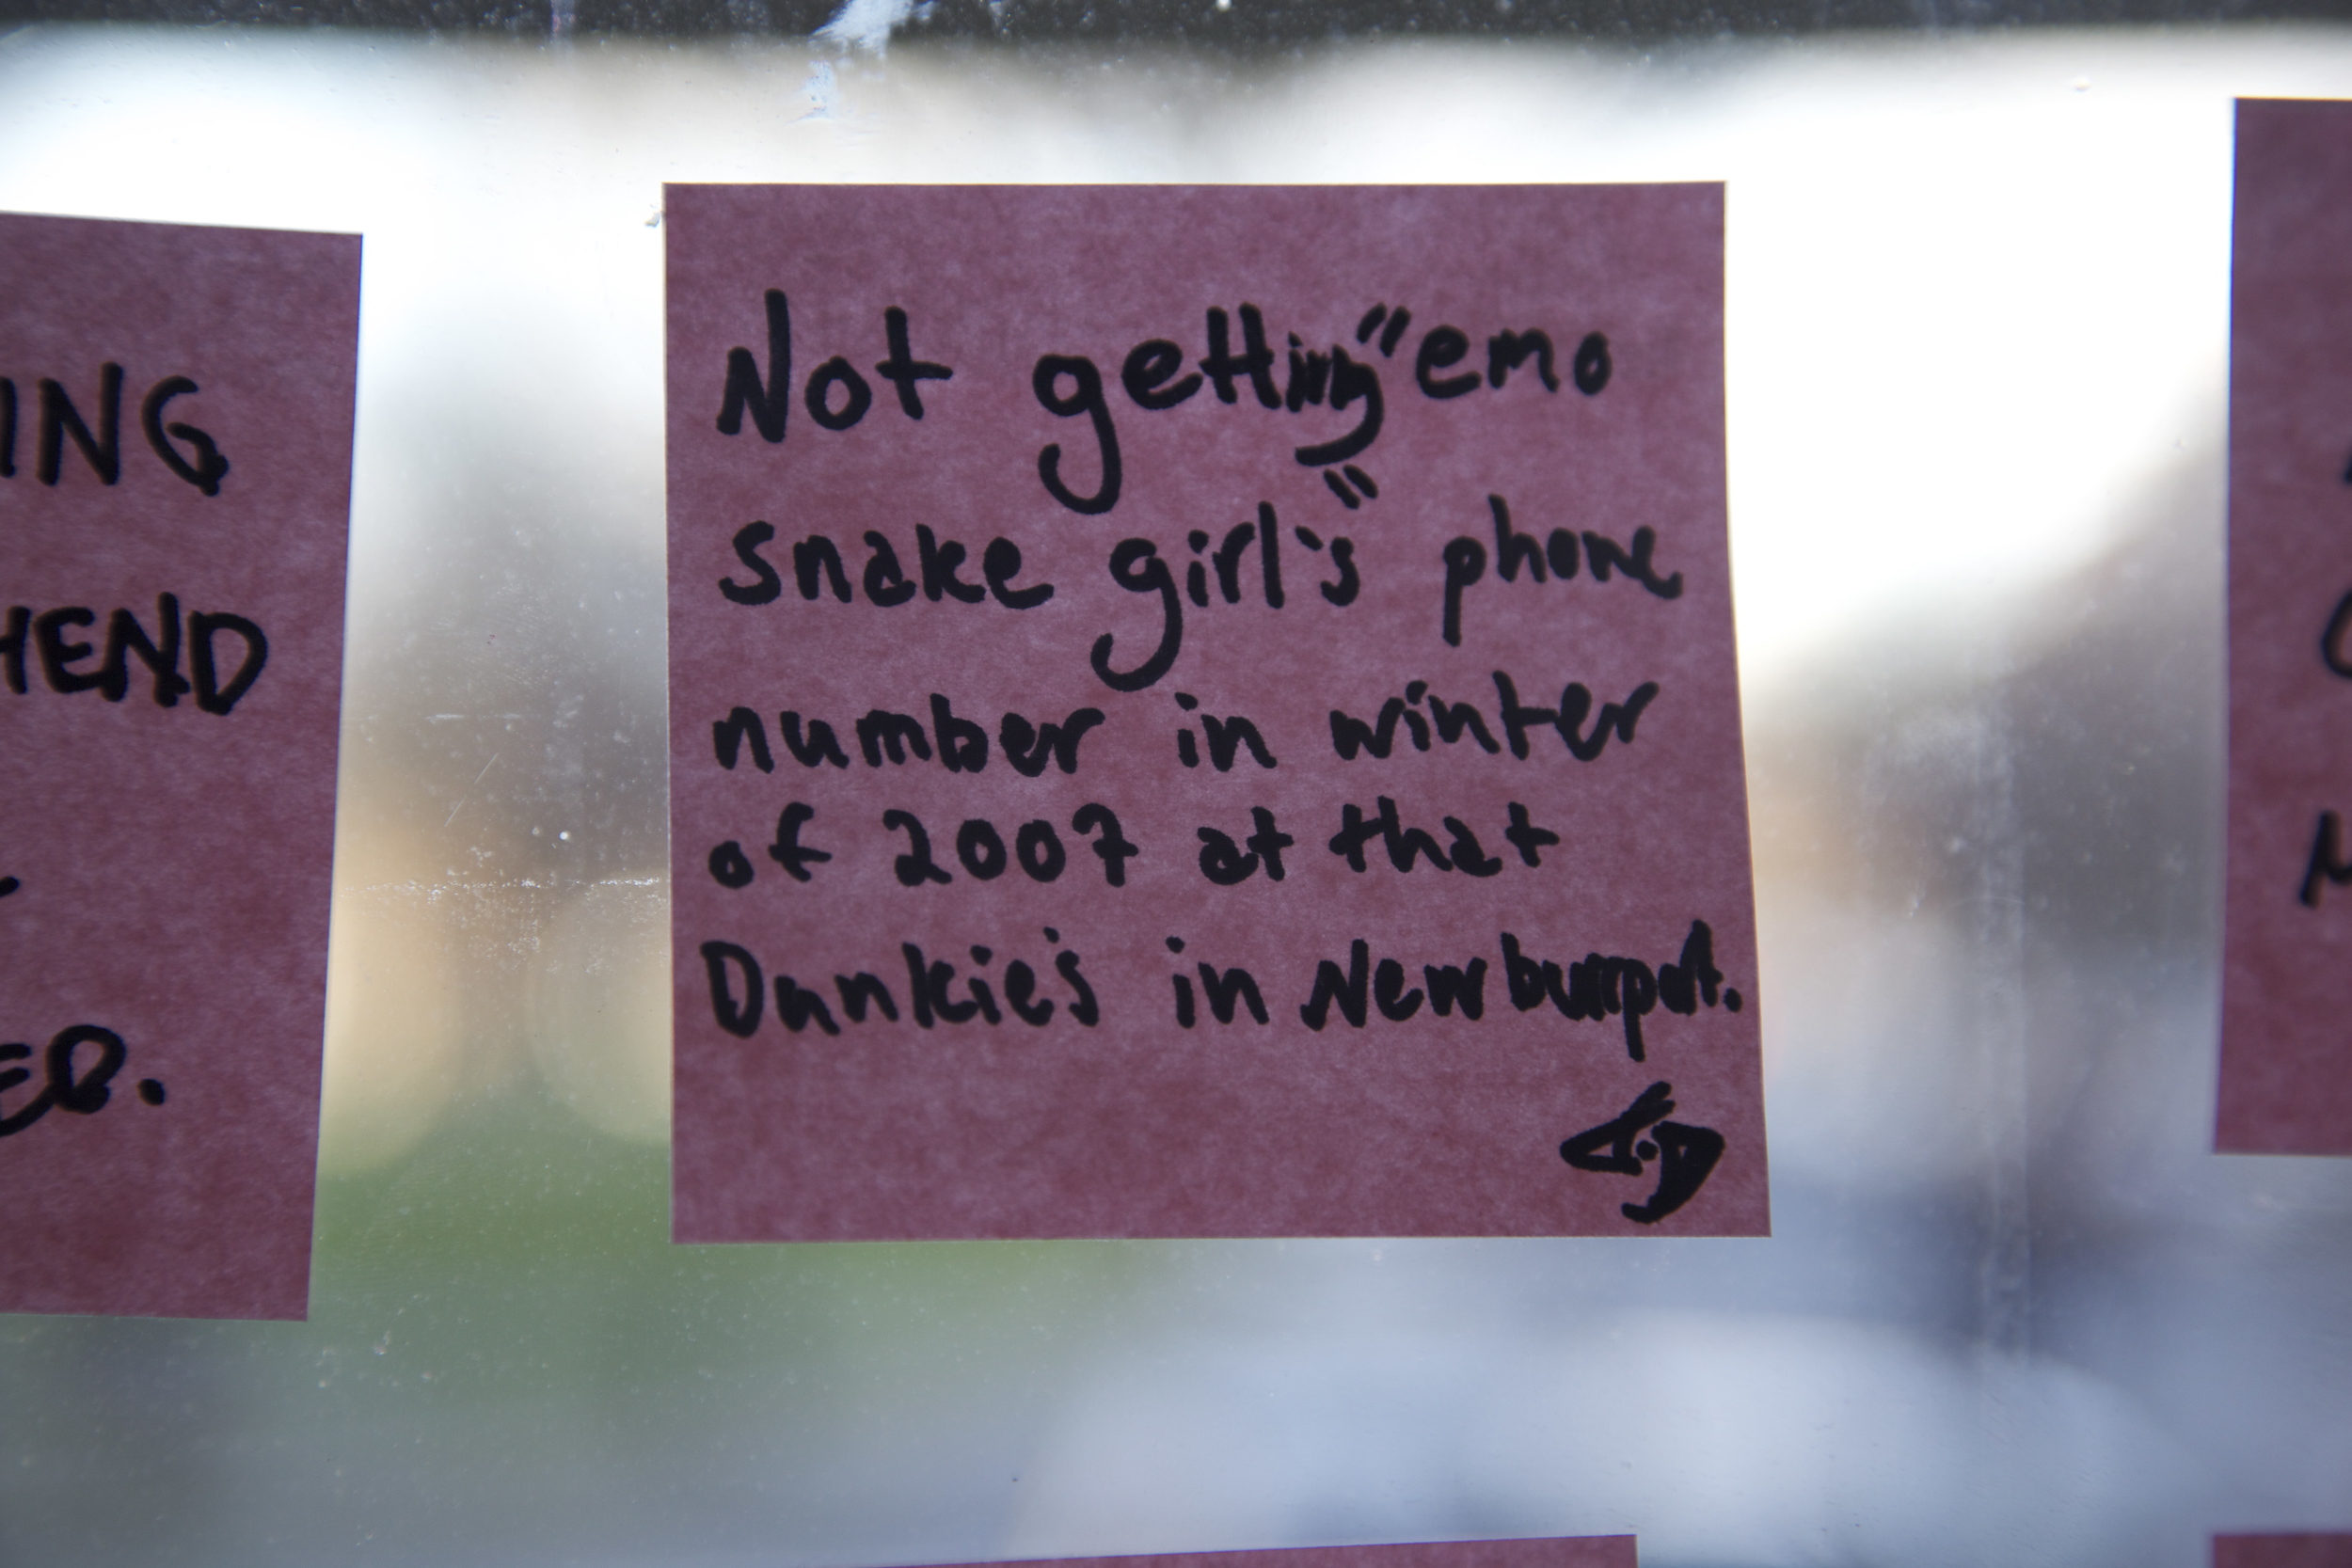 Not getting "emo
snake girl's" phone
number in winter
of 2007 at that
Dunkie's in Newburyport.
ING
HEND
ED.